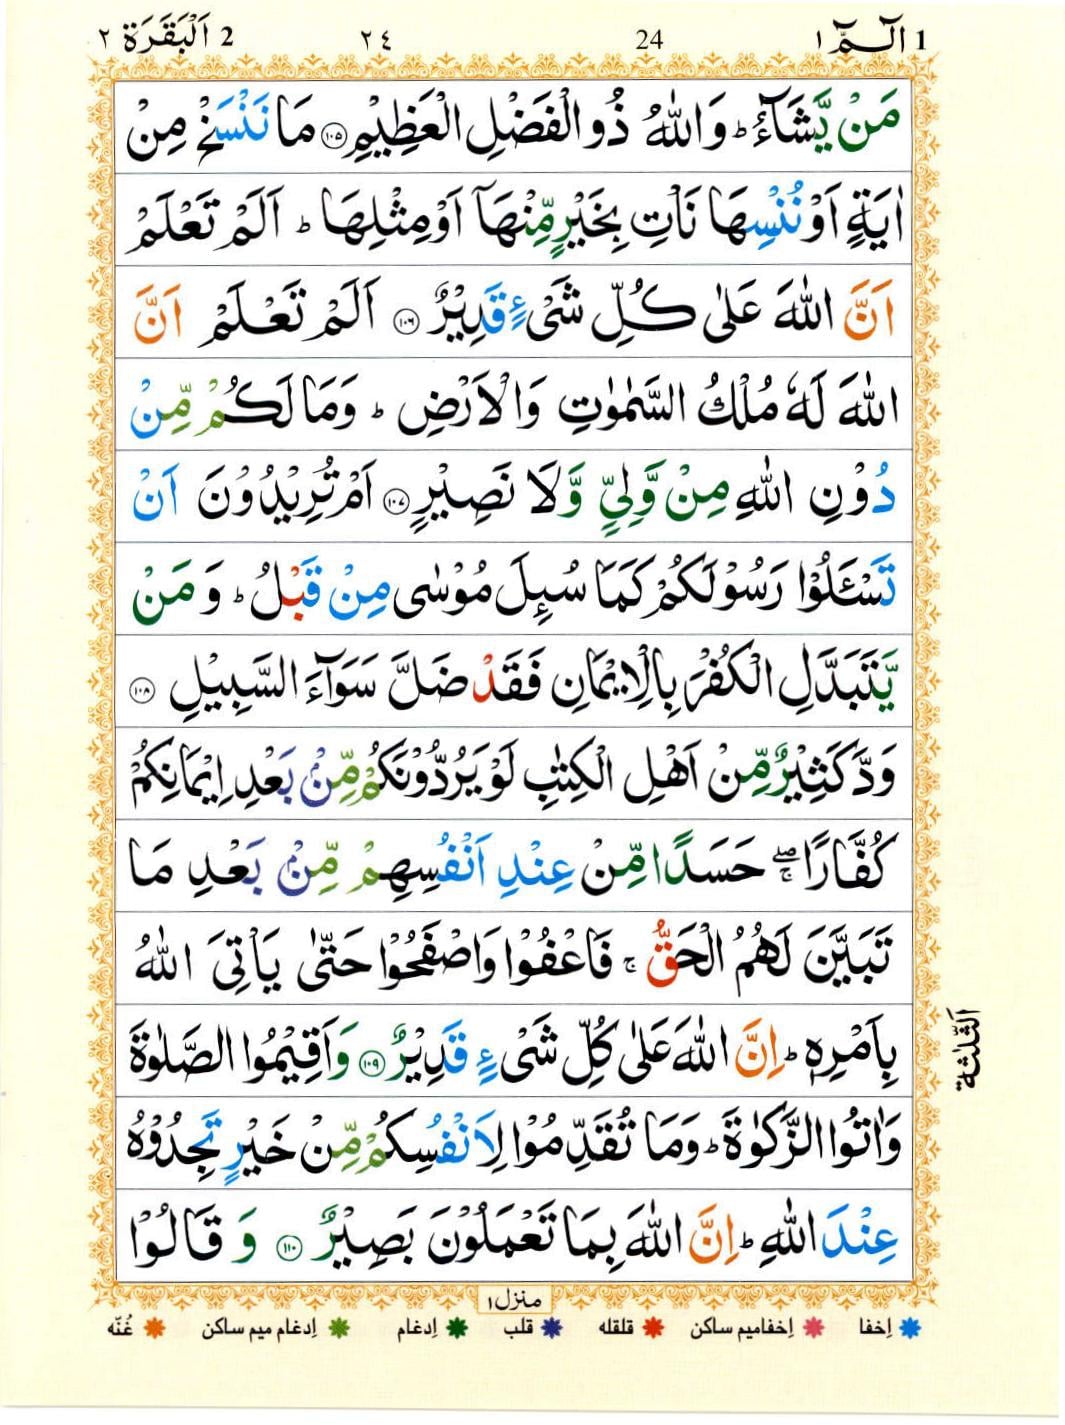 1 الٓـمّٓ ١ 24 ٢٤ 2 اَلْبَقَرَة ٢
مَنْ يَّشَآءُ ؕ وَاللّٰهُ ذُو الْفَضْلِ الْعَظِيْمِ ۝۱۰۵ مَا نَنْسَخْ مِنْ
اٰيَةٍ اَوْ نُنْسِهَا نَاْتِ بِخَيْرٍ مِّنْهَآ اَوْ مِثْلِهَا ؕ اَلَمْ تَعْلَمْ
اَنَّ اللّٰهَ عَلٰى كُلِّ شَیْءٍ قَدِيْرٌ ۝۱۰۶ اَلَمْ تَعْلَمْ اَنَّ
اللّٰهَ لَهٗ مُلْكُ السَّمٰوٰتِ وَالْاَرْضِ ؕ وَمَا لَكُمْ مِّنْ
دُوْنِ اللّٰهِ مِنْ وَّلِیٍّ وَّلَا نَصِيْرٍ ۝۱۰۷ اَمْ تُرِيْدُوْنَ اَنْ
تَسْـَٔلُوْا رَسُوْلَكُمْ كَمَا سُىِٕلَ مُوْسٰى مِنْ قَبْلُ ؕ وَ مَنْ
يَّتَبَدَّلِ الْكُفْرَ بِالْاِيْمَانِ فَقَدْ ضَلَّ سَوَآءَ السَّبِيْلِ ۝۱۰۸
وَدَّ كَثِيْرٌ مِّنْ اَهْلِ الْكِتٰبِ لَوْ يَرُدُّوْنَكُمْ مِّنْۢ بَعْدِ اِيْمَانِكُمْ
كُفَّارًا ۖۚ حَسَدًا مِّنْ عِنْدِ اَنْفُسِهِمْ مِّنْۢ بَعْدِ مَا
تَبَيَّنَ لَهُمُ الْحَقُّ ۚ فَاعْفُوْا وَاصْفَحُوْا حَتّٰى يَاْتِیَ اللّٰهُ
بِاَمْرِهٖ ؕ اِنَّ اللّٰهَ عَلٰى كُلِّ شَیْءٍ قَدِيْرٌ ۝۱۰۹ وَاَقِيْمُوا الصَّلٰوةَ
وَاٰتُوا الزَّكٰوةَ ؕ وَمَا تُقَدِّمُوْا لِاَنْفُسِكُمْ مِّنْ خَيْرٍ تَجِدُوْهُ
عِنْدَ اللّٰهِ ؕ اِنَّ اللّٰهَ بِمَا تَعْمَلُوْنَ بَصِيْرٌ ۝۱۱۰ وَ قَالُوْا
اَلثَّلٰثَة
منزل۱
اِخفا اِخفامیم ساکن قلقله قلب اِدغام اِدغام میم ساکن غُنّه